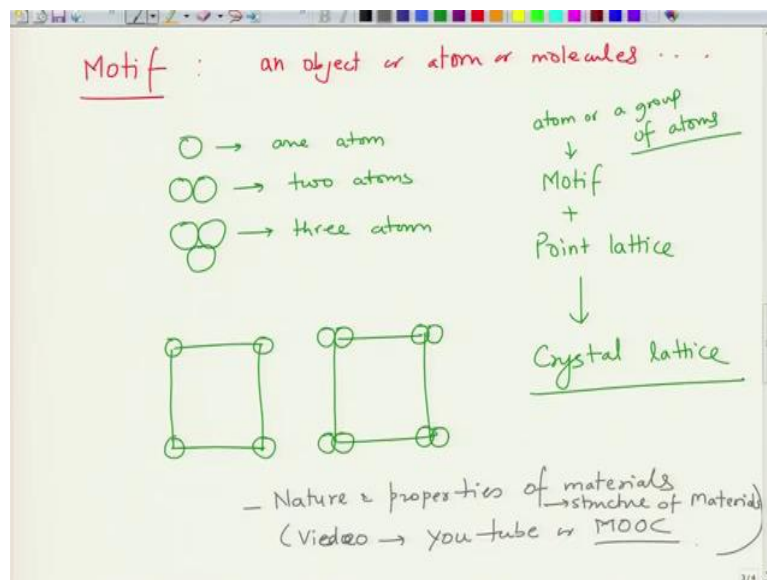 Motif : an object or atom or molecules ....
→ one atom
→ two atoms
→ three atom
atom or a group
of atoms
↓
Motif
+
Point lattice
↓
Crystal lattice
- Nature & properties of materials
→ structure of Materials
(Viedeo → you tube or MOOC )